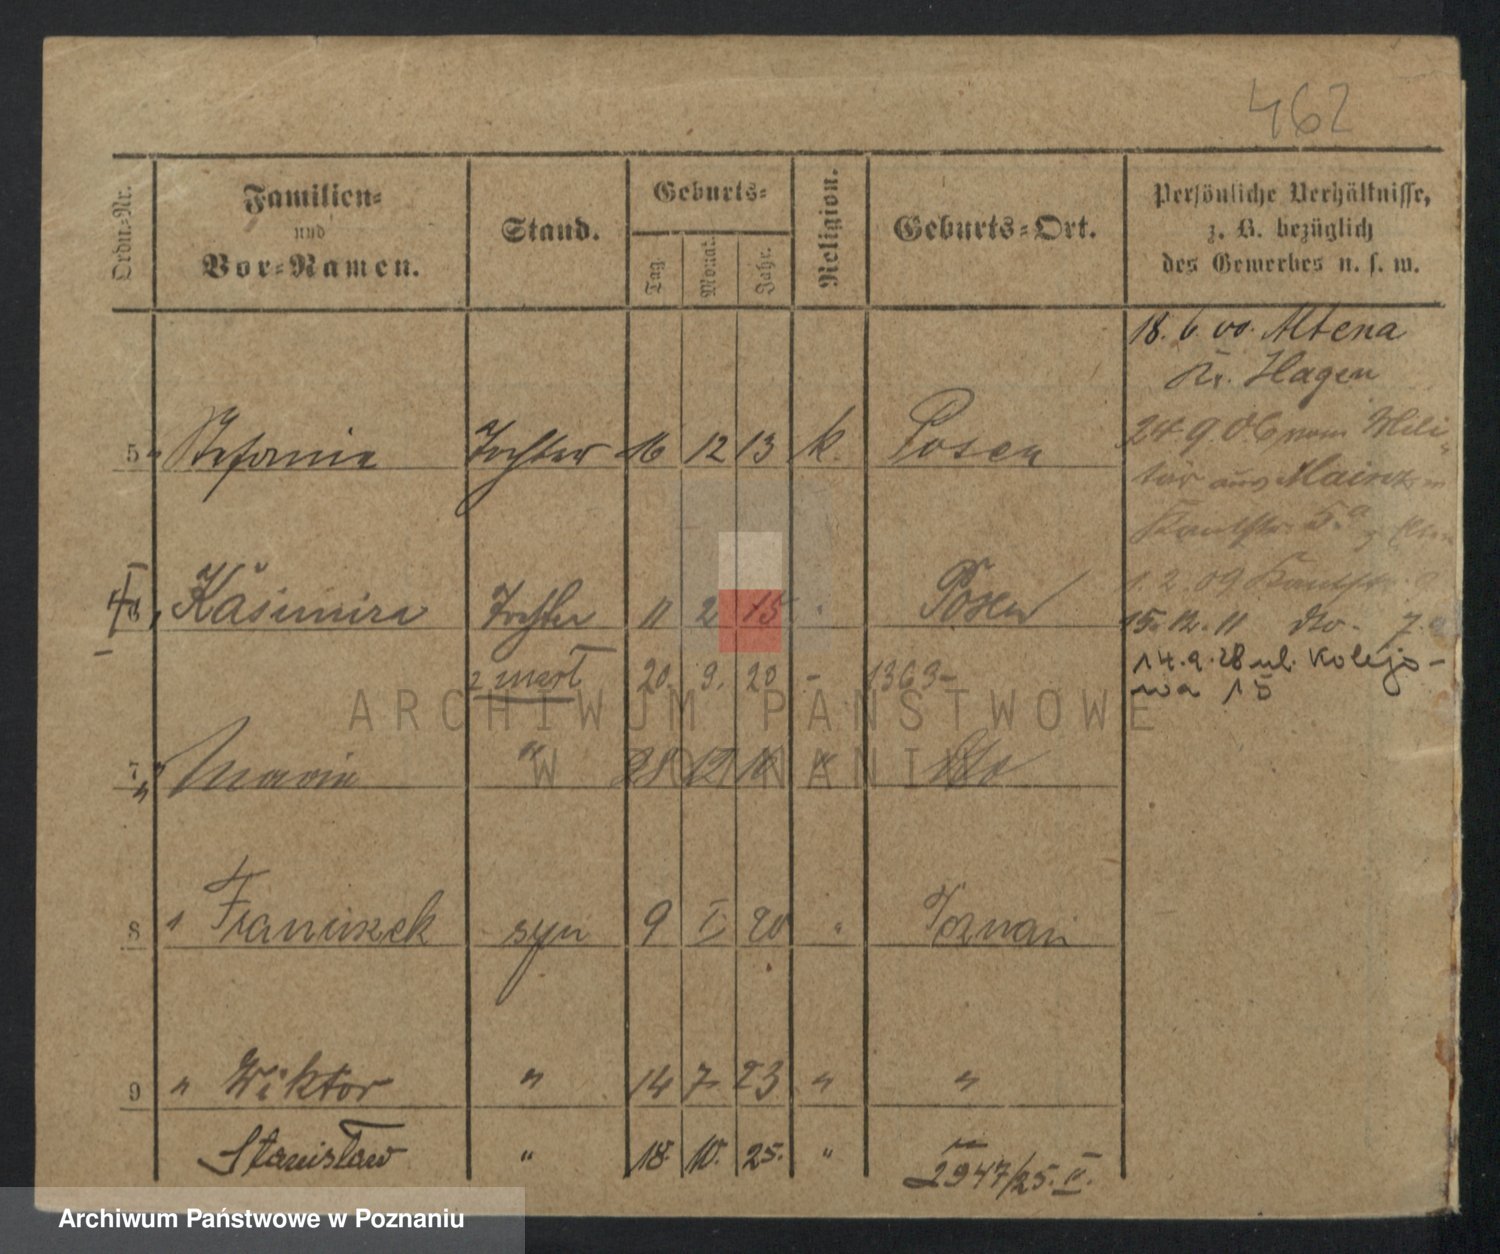 462
Ordn.-Nr.
Familien-
und
Vor-Namen.
Stand.
Geburts-
Tag.
Monat.
Jahr.
Religion.
Geburts-Ort.
Persönliche Verhältnisse,
z. B. bezüglich
des Gewerbes u. s. w.
18. 6. 00. Altena
Kr. Hagen
24. 9. 06 vom Mili-
tär aus Mainz
5 " Stefanie Tochter 16 12 13 k. Posen
1. 2. 09
6 " Kasimira Tochter 11 2 15 " Posen
15. 12. 11 dto. 7.
14. 9. 28 ul. Kolejo-
wa 15
zmarł 20. 9. 20 - 1363-
7 " Maria " 28 12 " dto
8 " Franciszek syn 9 I 20 " Poznań
9 " Wiktor " 14 7 23 " "
Stanisław " 18. 10. 25. " "
2947/25. II.
ARCHIWUM PAŃSTWOWE
W POZNANIU
Archiwum Państwowe w Poznaniu